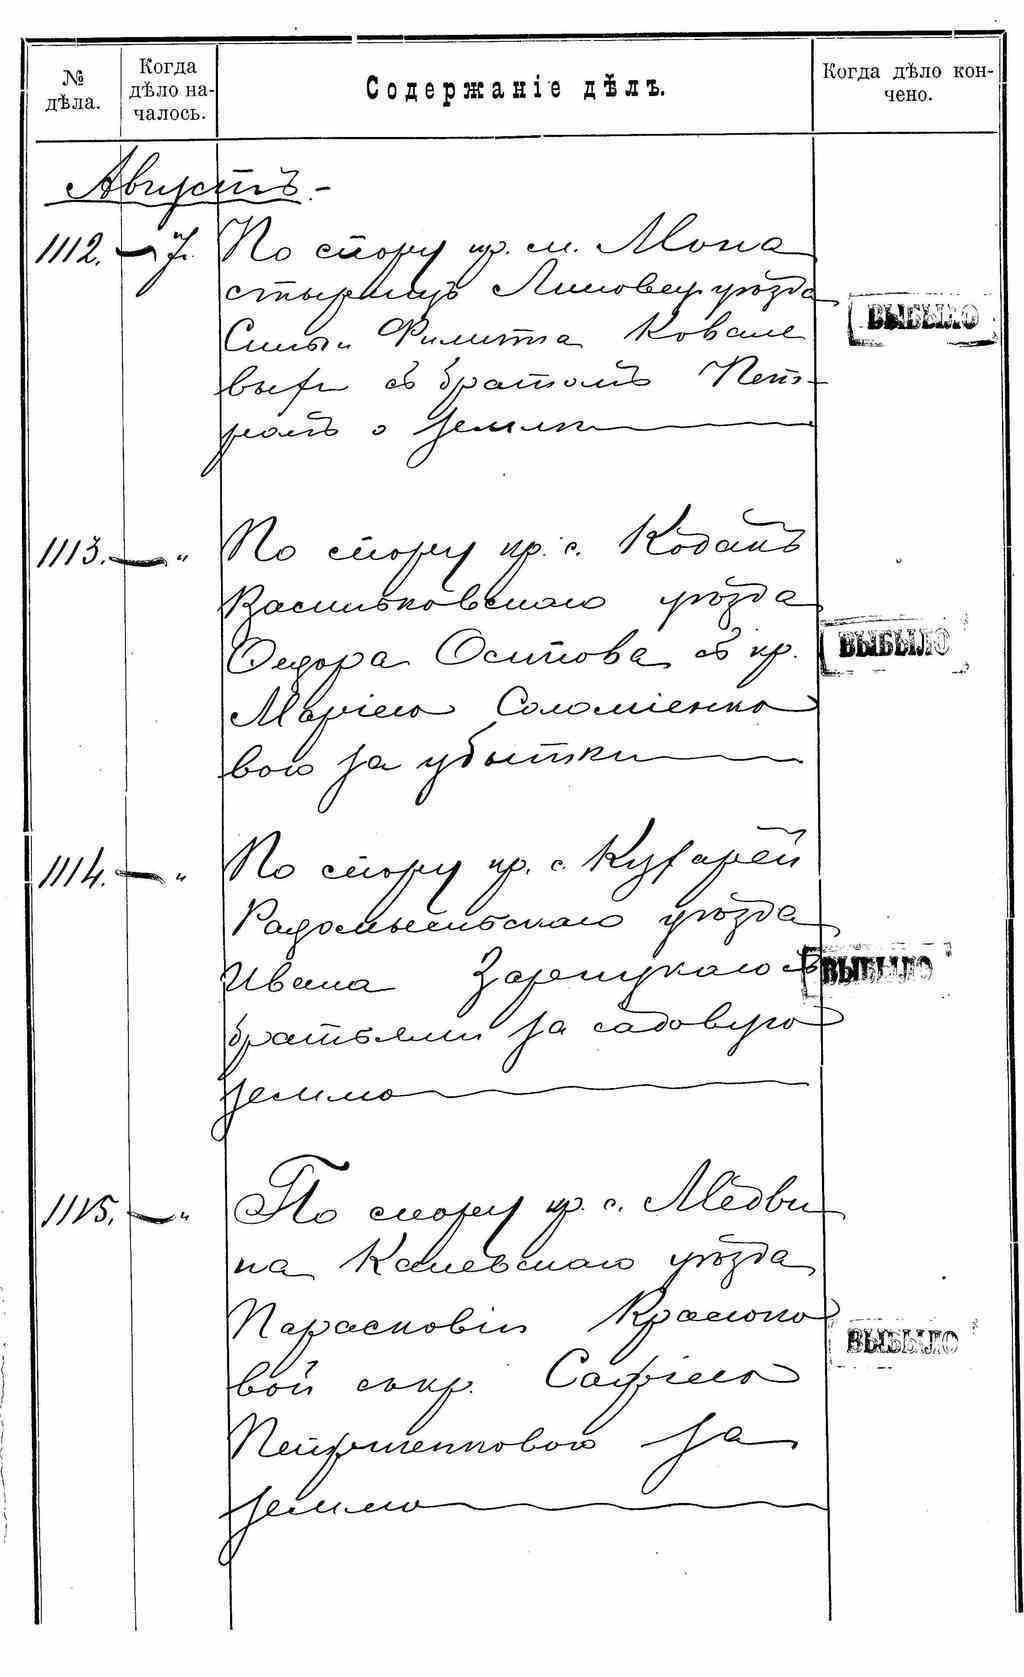 № дѣла.
Когда дѣло началось.
Содержаніе дѣлъ.
Когда дѣло кончено.
Августъ.
1112. — 7. По спору кр. м. Мона
стырищъ Липовец. уѣзда
ВЫБЫЛО
Силы и Филиппа Ковале
выхъ съ братомъ Пет-
ромъ о землѣ
1113. — „ По спору кр. с. Кодакъ
Васильковскаго уѣзда
Ѳедора Осипова съ кр.
ВЫБЫЛО
Маріею Соломіенко
вою за убытки
1114. — „ По спору кр. с. Кухарей
Радомысльскаго уѣзда
Ивана Зарецкаго съ
ВЫБЫЛО
братьями за садовую
землю
1115. — „ По спору кр. с. Медви
на Каневскаго уѣзда
Парасковіи
ВЫБЫЛО
вой съ кр. Софіею
за
землю